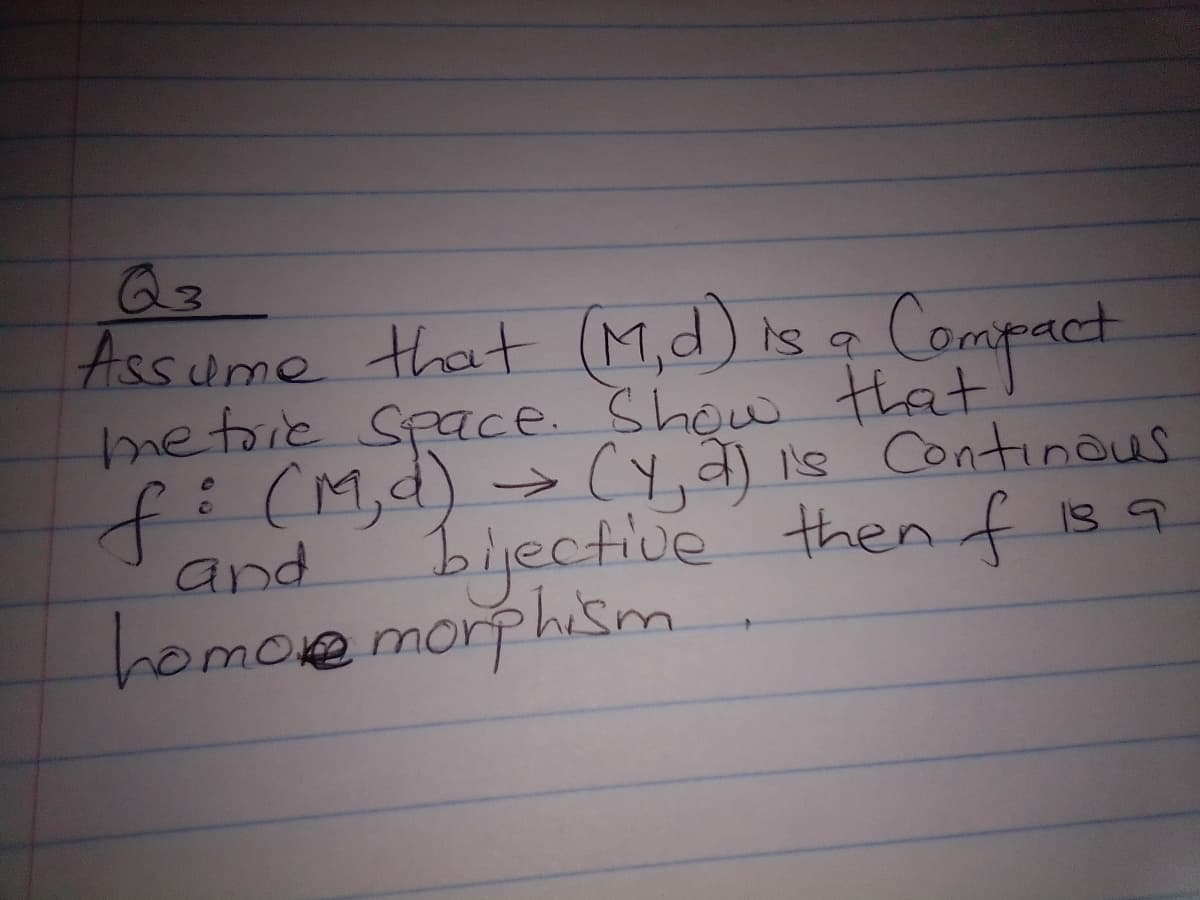 Q3
Assume that (M,d) is a Compact
metric space. Show that
f : (M,d) → (Y,d) is Continous
and bijective then f is a
homoemorphism.